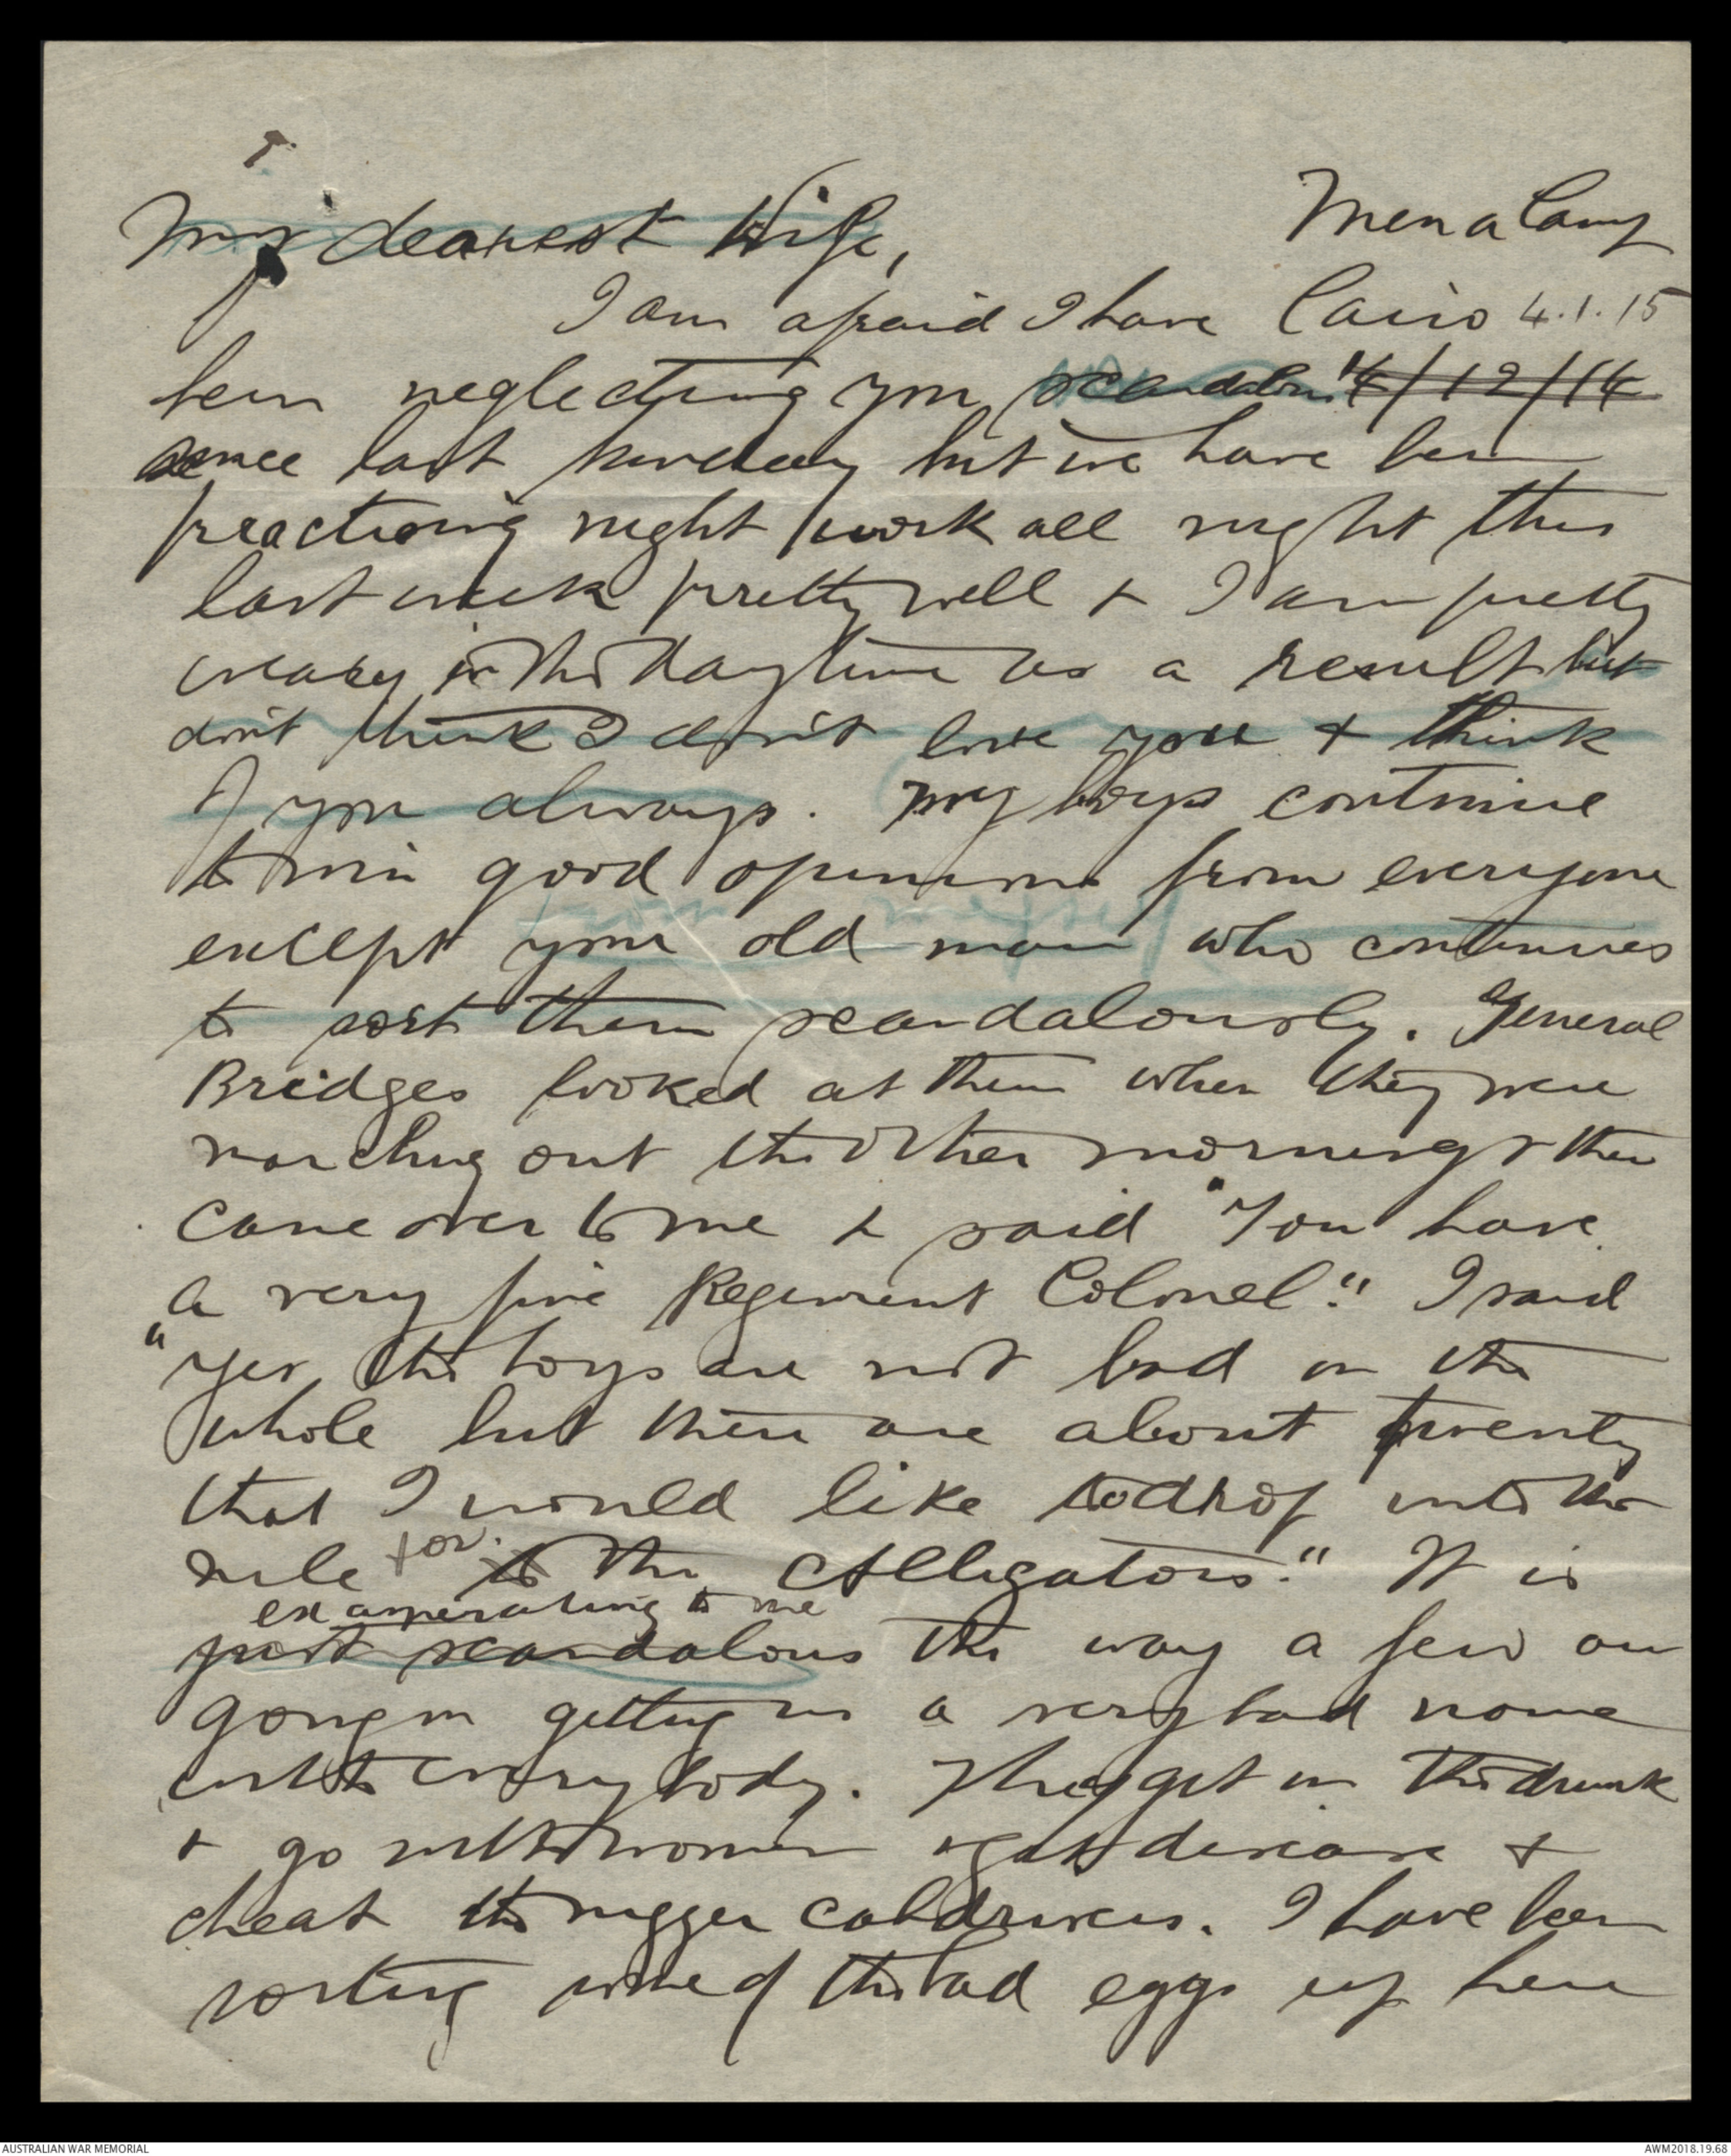 Mena Camp
My dearest Wife,
Cairo 4.1.15
I am afraid I have
4/12/14
been neglecting you
since last Sunday but we have been
practising night work all night this
last week pretty well & I am pretty
weary in the daytime as a result but
don't think I don't love you & think
of you always. My boys continue
to win good opinions from everyone
except your old man who continues
to sort them scandalously. General
Bridges looked at them when they were
marching out the other morning & then
came over to me & said "You have
a very fine Regiment Colonel." I said
"Yes the boys are not bad on the
whole but there are about twenty
that I would like to drop into the
nile for to the Alligators." It is
exasperating to me
just scandalous the way a few are
going on getting us a very bad name
with everybody. They get on the drunk
& go with women & get disease &
cheat the nigger cabdrivers. I have been
sorting some of the bad eggs up here
AUSTRALIAN WAR MEMORIAL
AWM2018.19.68